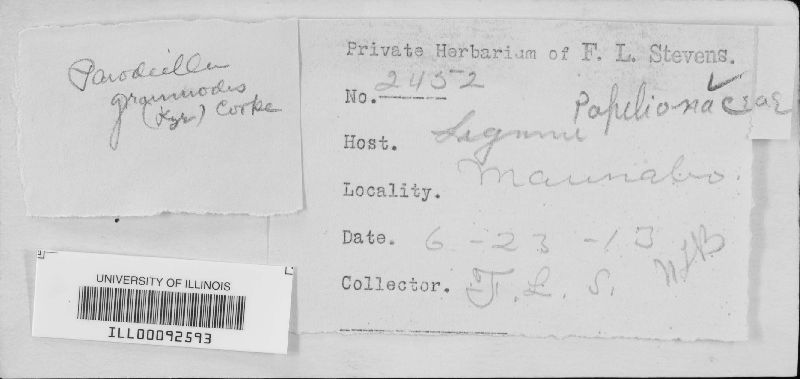 Parodiella
grammodes
(Kze) Cooke
Private Herbarium of F. L. Stevens.
No. 2452
Papilionaceae
Host. Legume
Locality. Maunabo.
Date. 6-23-13
Collector. F. L. S.
UNIVERSITY OF ILLINOIS
ILL00092593